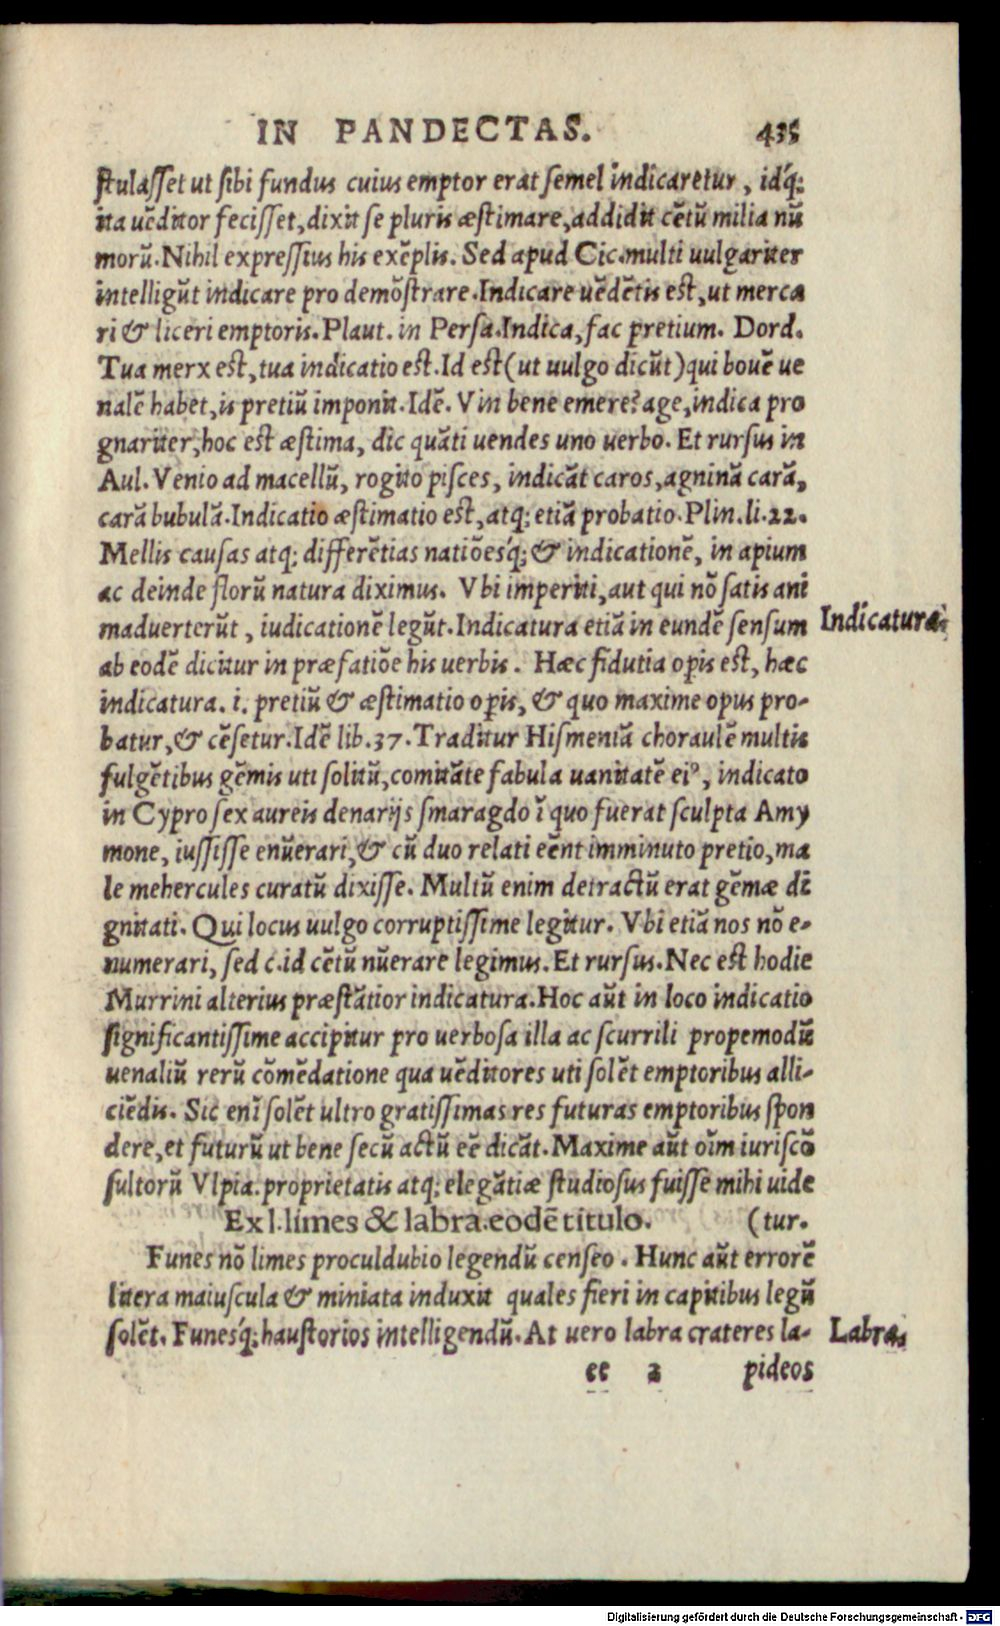 IN PANDECTAS. 435
stulasset ut sibi fundus cuius emptor erat semel indicaretur, idq́;
ita uēditor fecisset, dixit se pluris æstimare, addidit cētū milia nū
morū. Nihil expressius his exēplis. Sed apud Cic. multi uulgariter
intelligūt indicare pro demōstrare. Indicare uēdētis est, ut merca
ri & liceri emptoris. Plaut. in Persa. Indica, fac pretium. Dord.
Tua merx est, tua indicatio est. Id est (ut uulgo dicūt) qui bouē ue
nalē habet, is pretiū imponit. Idē. Vin bene emere? age, indica pro
gnariter, hoc est æstima, dic quāti uendes uno uerbo. Et rursus in
Aul. Venio ad macellū, rogito pisces, indicāt caros, agninā carā,
carā bubulā. Indicatio æstimatio est, atq; etiā probatio. Plin. li. 22.
Mellis causas atq; differētias natiōesq́; & indicationē, in apium
ac deinde florū natura diximus. Vbi imperiti, aut qui nō satis ani
maduerterūt, iudicationē legūt. Indicatura etiā in eundē sensum
Indicatura.
ab eodē dicitur in præfatiōe his uerbis. Hæc fidutia op̱is est, hæc
indicatura. i. pretiū & æstimatio op̱is, & quo maxime opus pro-
batur, & cēsetur. Idē lib. 37. Traditur Hismeniā choraulē multis
fulgētibus gēmis uti solitū, comitāte fabula uanitatē eiꝰ, indicato
in Cypro sex aureis denarijs smaragdo ī quo fuerat sculpta Amy
mone, iussisse enūerari, & cū duo relati eēnt imminuto pretio, ma
le mehercules curatū dixisse. Multū enim detractū erat gēmæ di
gnitati. Qui locus uulgo corruptissime legitur. Vbi etiā nos nō e-
numerari, sed c. id cētū nūerare legimus. Et rursus. Nec est hodie
Murrini alterius præstātior indicatura. Hoc aūt in loco indicatio
significantissime accipitur pro uerbosa illa ac scurrili propemodū
uenaliū rerū cōmēdatione qua uēditores uti solēt emptoribus alli-
ciēdis. Sic enī solēt ultro gratissimas res futuras emptoribus spon
dere, et futurū ut bene secū actū eē dicāt. Maxime aūt oīm iuriscō
sultorū Vlpia. proprietatis atq; elegātiæ studiosus fuisse mihi uide
Ex l. limes & labra. eodē titulo. (tur.
Funes nō limes proculdubio legendū censeo. Hunc aūt errorē
litera maiuscula & miniata induxit quales fieri in capitibus legū
solēt. Funesq́; haustorios intelligendū. At uero labra crateres la-
Labra.
ee 2 pideos
Digitalisierung gefördert durch die Deutsche Forschungsgemeinschaft - DFG